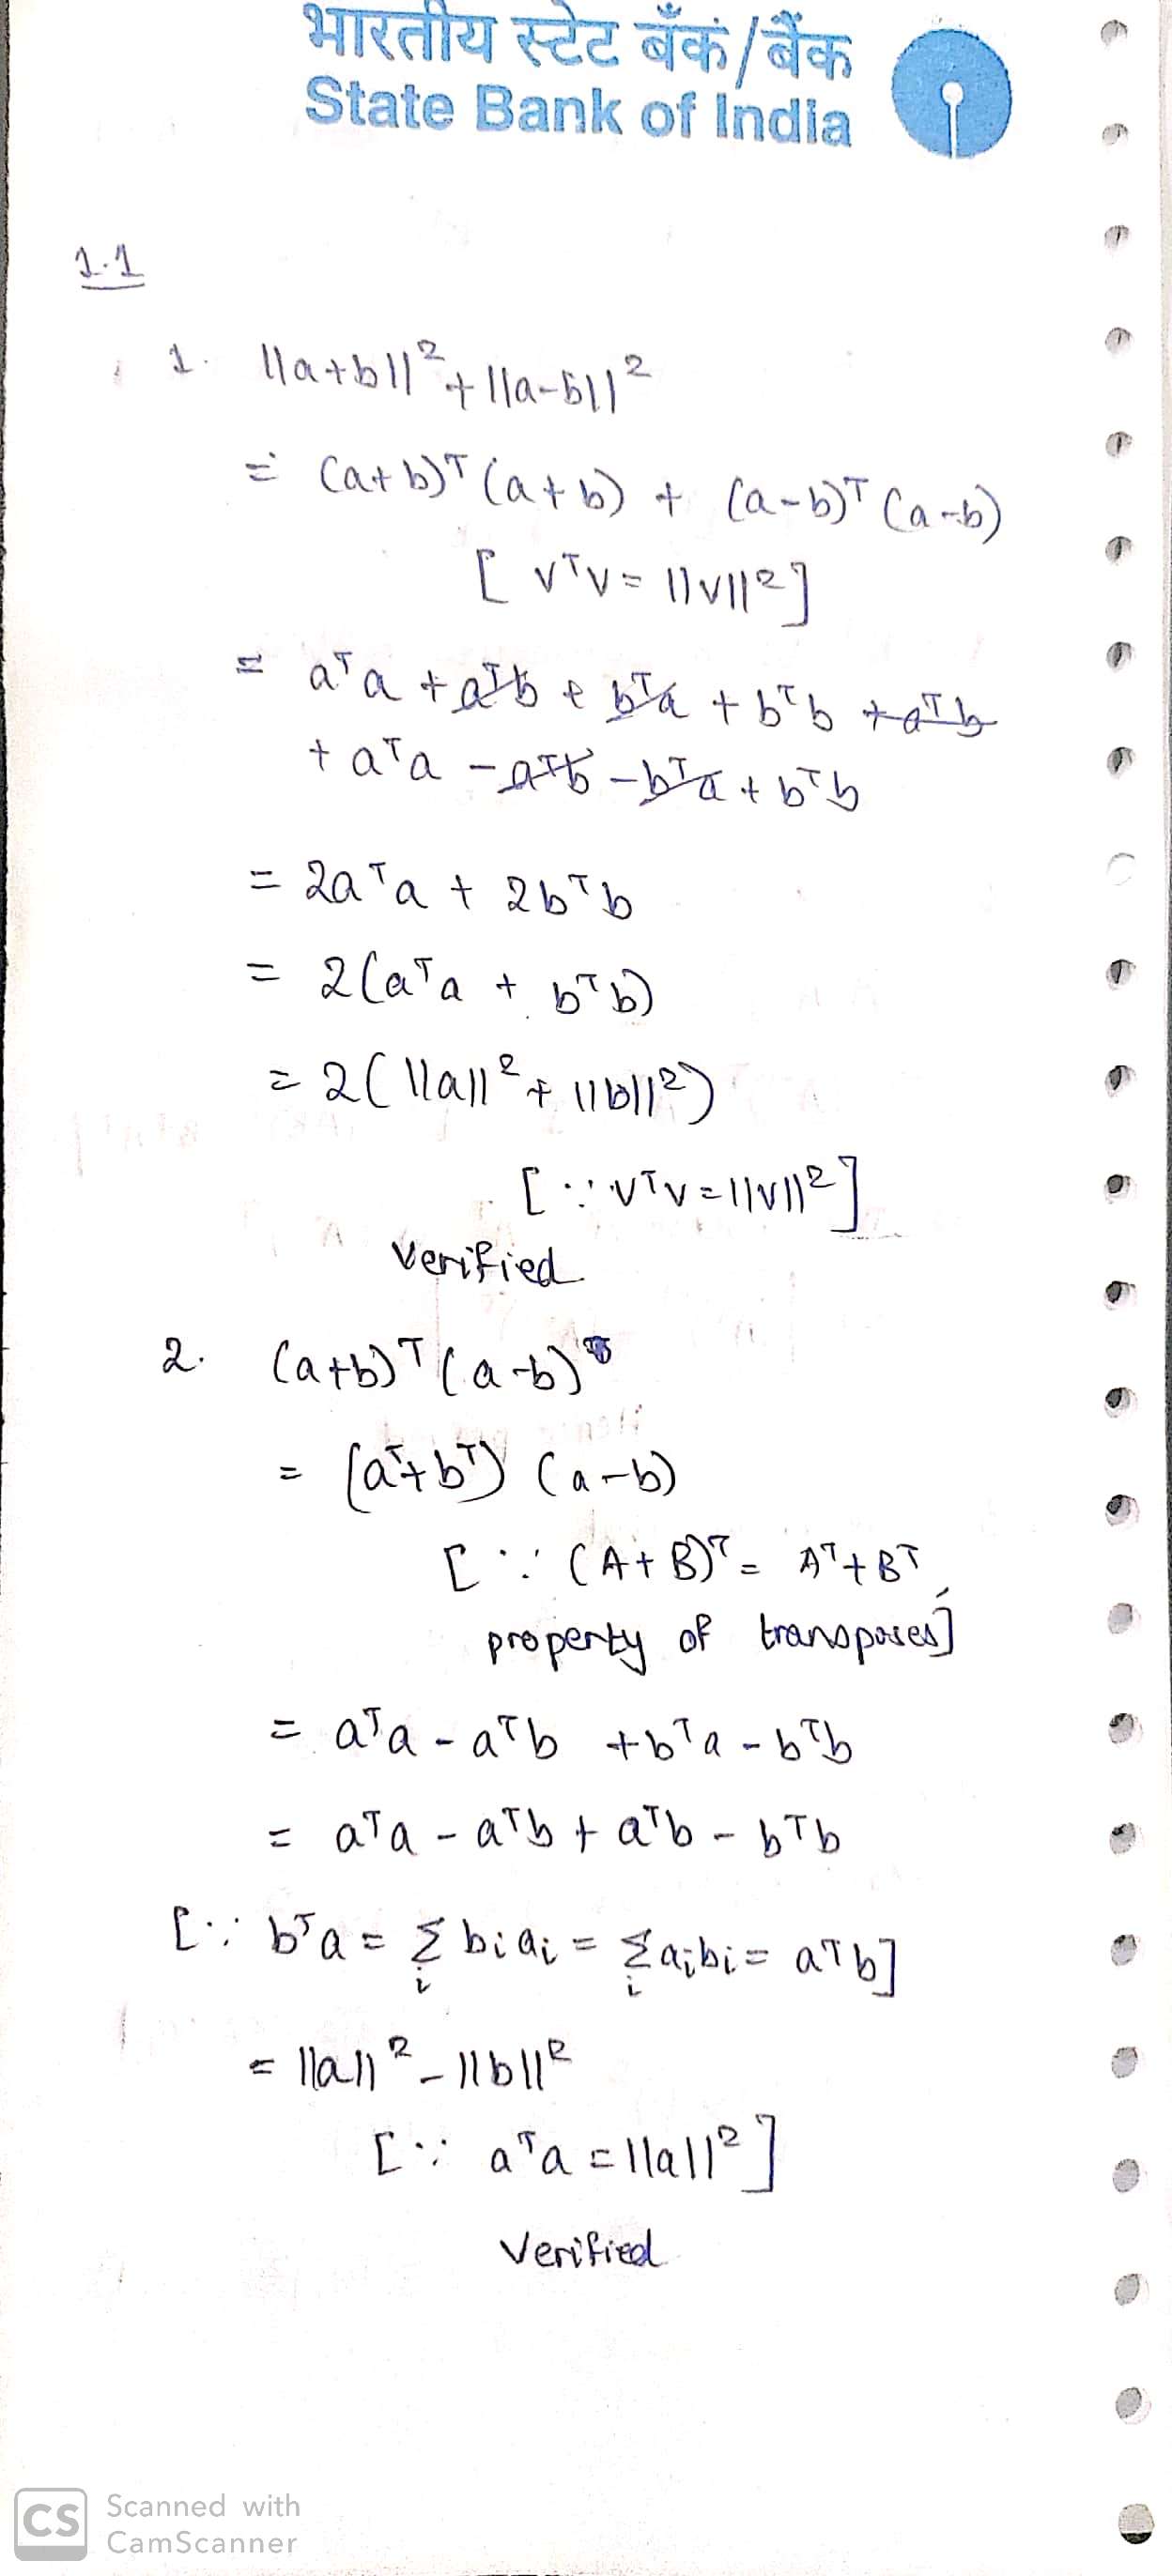 भारतीय स्टेट बँक/बैंक
State Bank of India
1.1
1. ||a+b||² + ||a-b||²
= (a+b)ᵀ(a+b) + (a-b)ᵀ(a-b)
[ vᵀv = ||v||² ]
= aᵀa + aᵀb + bᵀa + bᵀb + aᵀb
+ aᵀa - aᵀb - bᵀa + bᵀb
= 2aᵀa + 2bᵀb
= 2(aᵀa + bᵀb)
= 2( ||a||² + ||b||²)
[ ∵ vᵀv = ||v||² ]
verified
2. (a+b)ᵀ(a-b)
= (aᵀ+bᵀ) (a-b)
[ ∵ (A+B)ᵀ = Aᵀ+Bᵀ,
property of transposes]
= aᵀa - aᵀb + bᵀa - bᵀb
= aᵀa - aᵀb + aᵀb - bᵀb
[∵ bᵀa = Σᵢ bᵢaᵢ = Σᵢ aᵢbᵢ = aᵀb]
= ||a||² - ||b||²
[∵ aᵀa = ||a||² ]
Verified
CS Scanned with
CamScanner